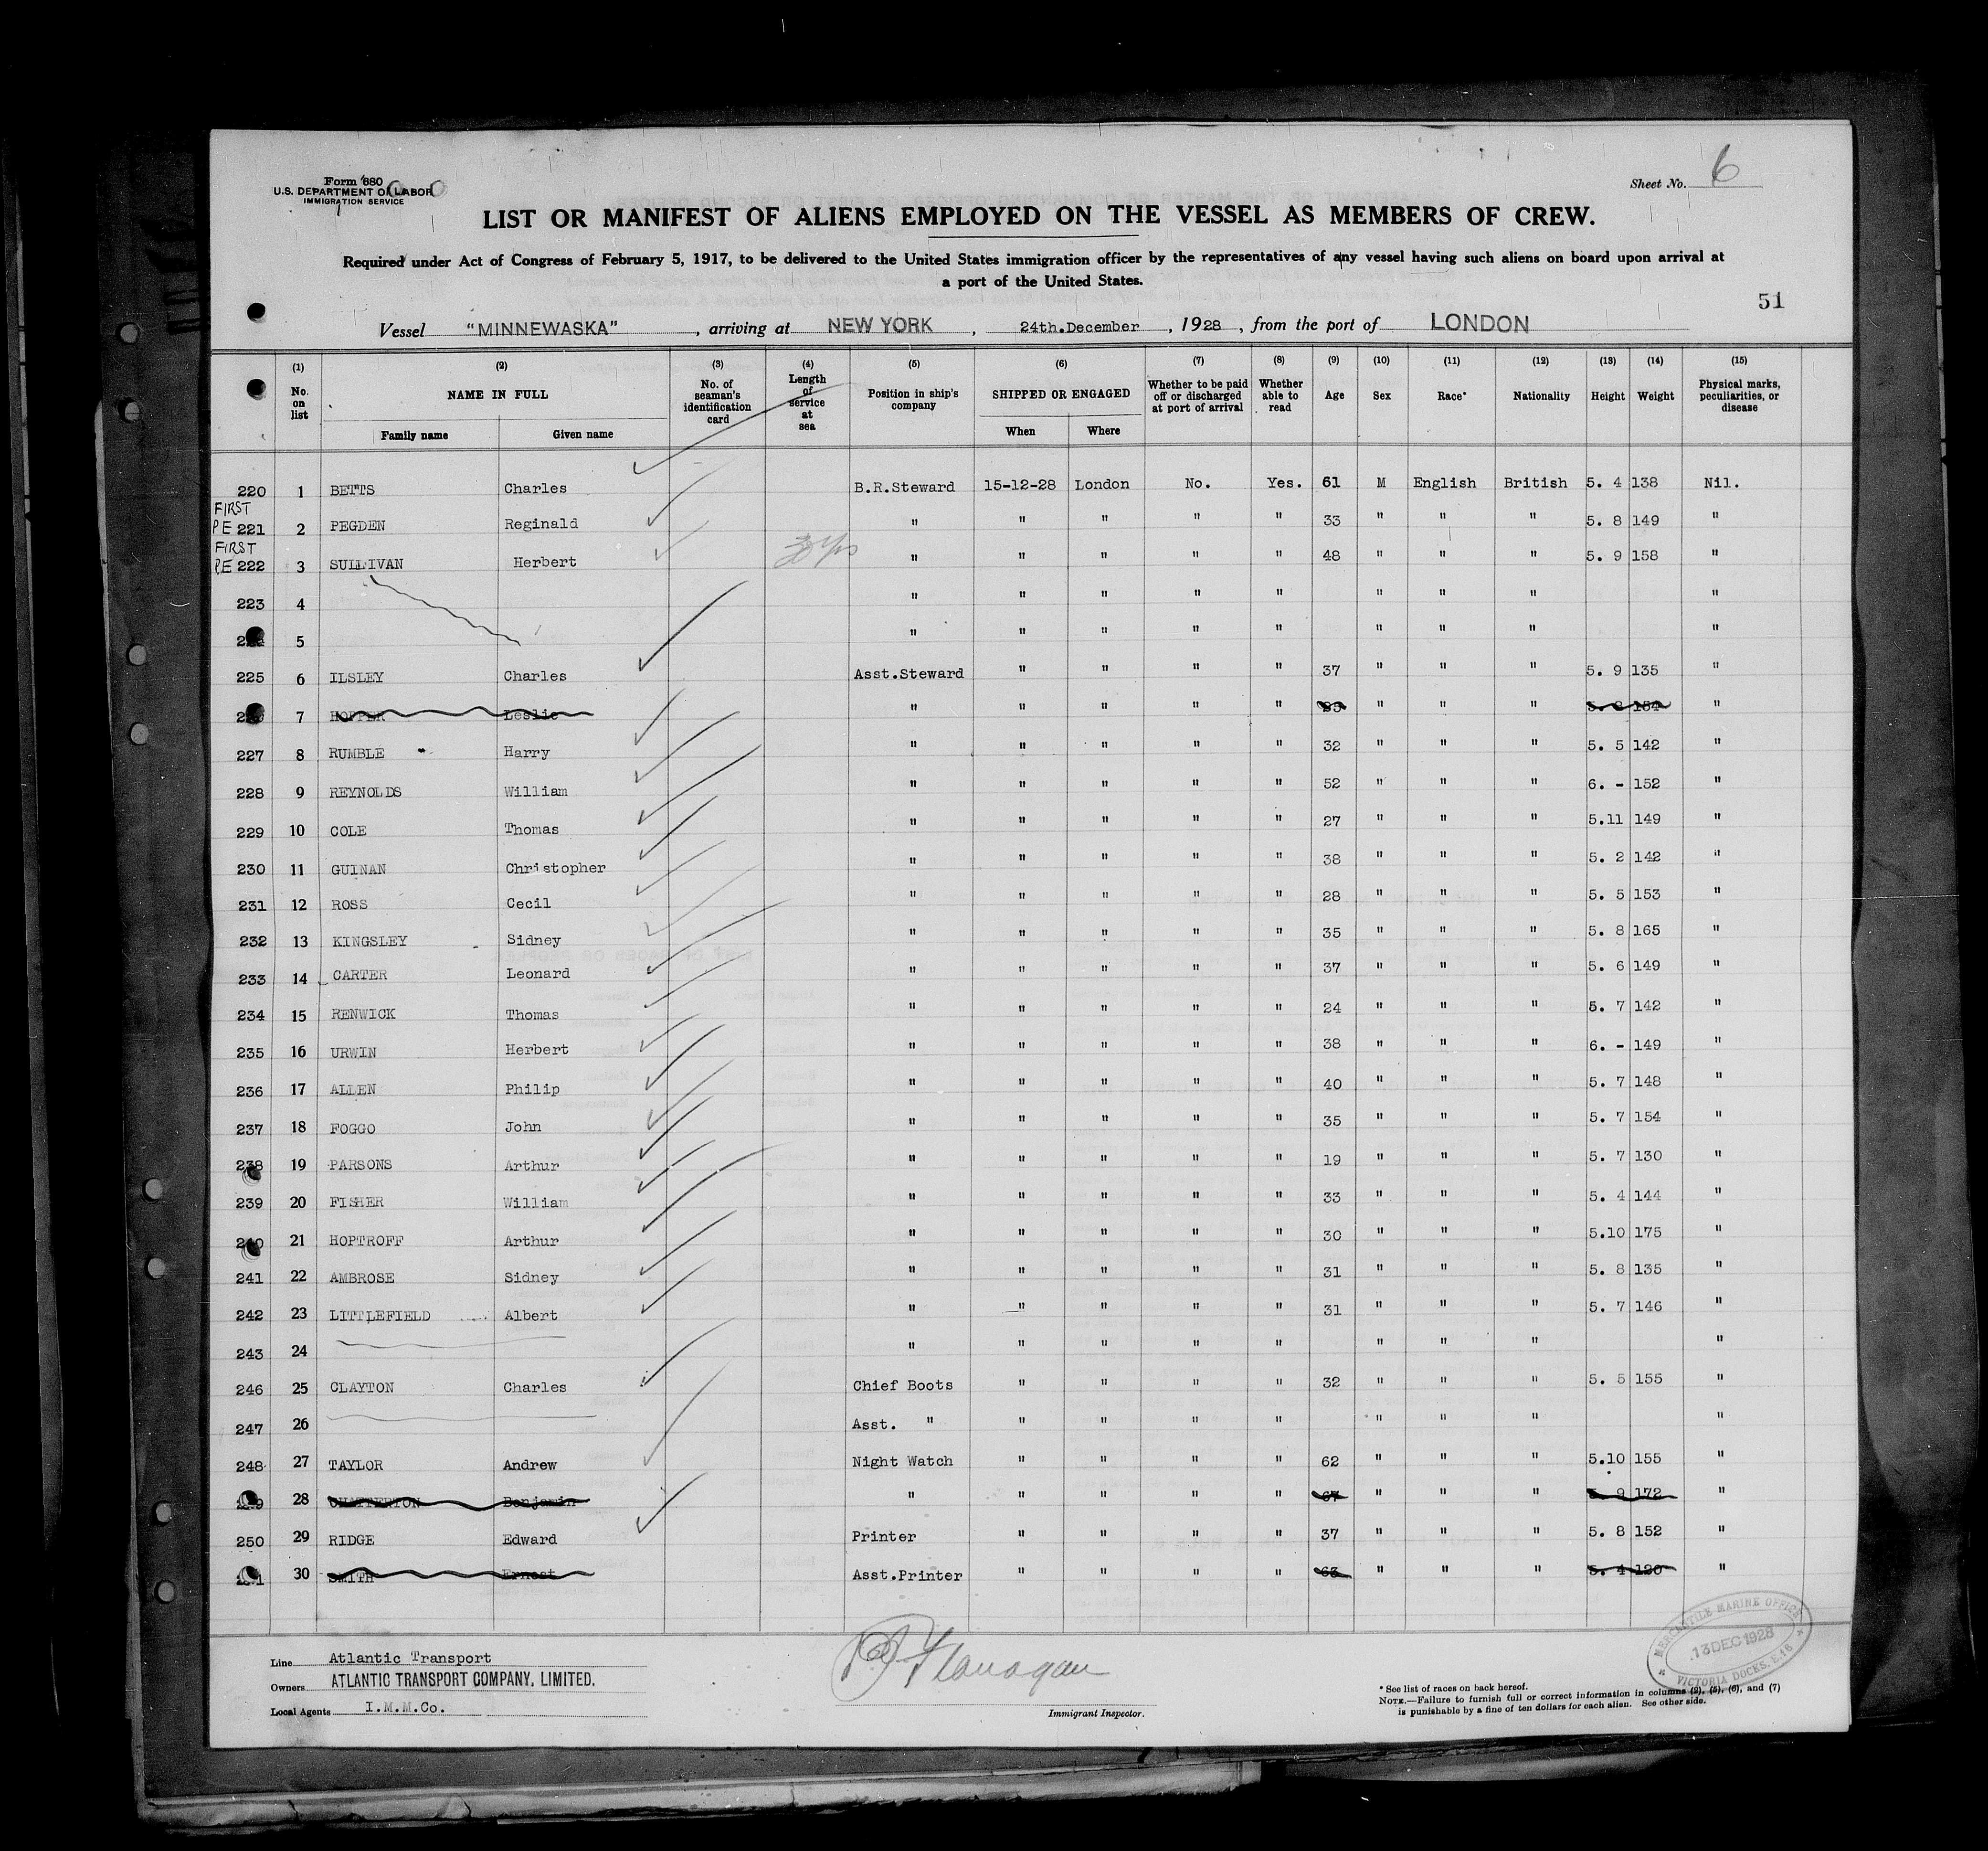 Form 680
U.S. DEPARTMENT OF LABOR
IMMIGRATION SERVICE
Sheet No. 6
LIST OR MANIFEST OF ALIENS EMPLOYED ON THE VESSEL AS MEMBERS OF CREW.
Required under Act of Congress of February 5, 1917, to be delivered to the United States immigration officer by the representatives of any vessel having such aliens on board upon arrival at
a port of the United States.
51
Vessel "MINNEWASKA", arriving at NEW YORK, 24th.December, 1928, from the port of LONDON
(1) (2) (3) (4) (5) (6) (7) (8) (9) (10) (11) (12) (13) (14) (15)
No. on list NAME IN FULL No. of seaman's identification card Length of service at sea Position in ship's company SHIPPED OR ENGAGED Whether to be paid off or discharged at port of arrival Whether able to read Age Sex Race* Nationality Height Weight Physical marks, peculiarities, or disease
Family name Given name When Where
220 1 BETTS Charles B.R.Steward 15-12-28 London No. Yes. 61 M English British 5. 4 138 Nil.
FIRST
PE 221 2 PEGDEN Reginald " " " " " 33 " " " 5. 8 149 "
FIRST
PE 222 3 SULLIVAN Herbert " " " " " 48 " " " 5. 9 158 "
223 4 " " " " " " " " "
5 " " " " " " " " "
225 6 ILSLEY Charles Asst.Steward " " " " 37 " " " 5. 9 135 "
7 HOPPER Leslie " " " " " " " " "
227 8 RUMBLE Harry " " " " " 32 " " " 5. 5 142 "
228 9 REYNOLDS William " " " " " 52 " " " 6. - 152 "
229 10 COLE Thomas " " " " " 27 " " " 5.11 149 "
230 11 GUINAN Christopher " " " " " 38 " " " 5. 2 142 "
231 12 ROSS Cecil " " " " " 28 " " " 5. 5 153 "
232 13 KINGSLEY Sidney " " " " " 35 " " " 5. 8 165 "
233 14 CARTER Leonard " " " " " 37 " " " 5. 6 149 "
234 15 RENWICK Thomas " " " " " 24 " " " 5. 7 142 "
235 16 URWIN Herbert " " " " " 38 " " " 6. - 149 "
236 17 ALLEN Philip " " " " " 40 " " " 5. 7 148 "
237 18 FOGGO John " " " " " 35 " " " 5. 7 154 "
238 19 PARSONS Arthur " " " " " 19 " " " 5. 7 130 "
239 20 FISHER William " " " " " 33 " " " 5. 4 144 "
240 21 HOPTROFF Arthur " " " " " 30 " " " 5.10 175 "
241 22 AMBROSE Sidney " " " " " 31 " " " 5. 8 135 "
242 23 LITTLEFIELD Albert " " " " " 31 " " " 5. 7 146 "
243 24 " " " " " " " " "
246 25 CLAYTON Charles Chief Boots " " " " 32 " " " 5. 5 155 "
247 26 Asst. " " " " " " " " "
248 27 TAYLOR Andrew Night Watch " " " " 62 " " " 5.10 155 "
28 CHATTERTON Benjamin " " " " " 67 " " " 5. 9 172 "
250 29 RIDGE Edward Printer " " " " 37 " " " 5. 8 152 "
30 SMITH Ernest Asst.Printer " " " " 63 " " " 5. 4 120 "
Line Atlantic Transport
Owners ATLANTIC TRANSPORT COMPANY, LIMITED.
Local Agents I.M.M.Co.
Flanagan
Immigrant Inspector.
MERCANTILE MARINE OFFICE
13 DEC 1928
VICTORIA DOCKS, E.16
* See list of races on back hereof.
NOTE.—Failure to furnish full or correct information in columns (2), (5), (6), and (7)
is punishable by a fine of ten dollars for each alien. See other side.